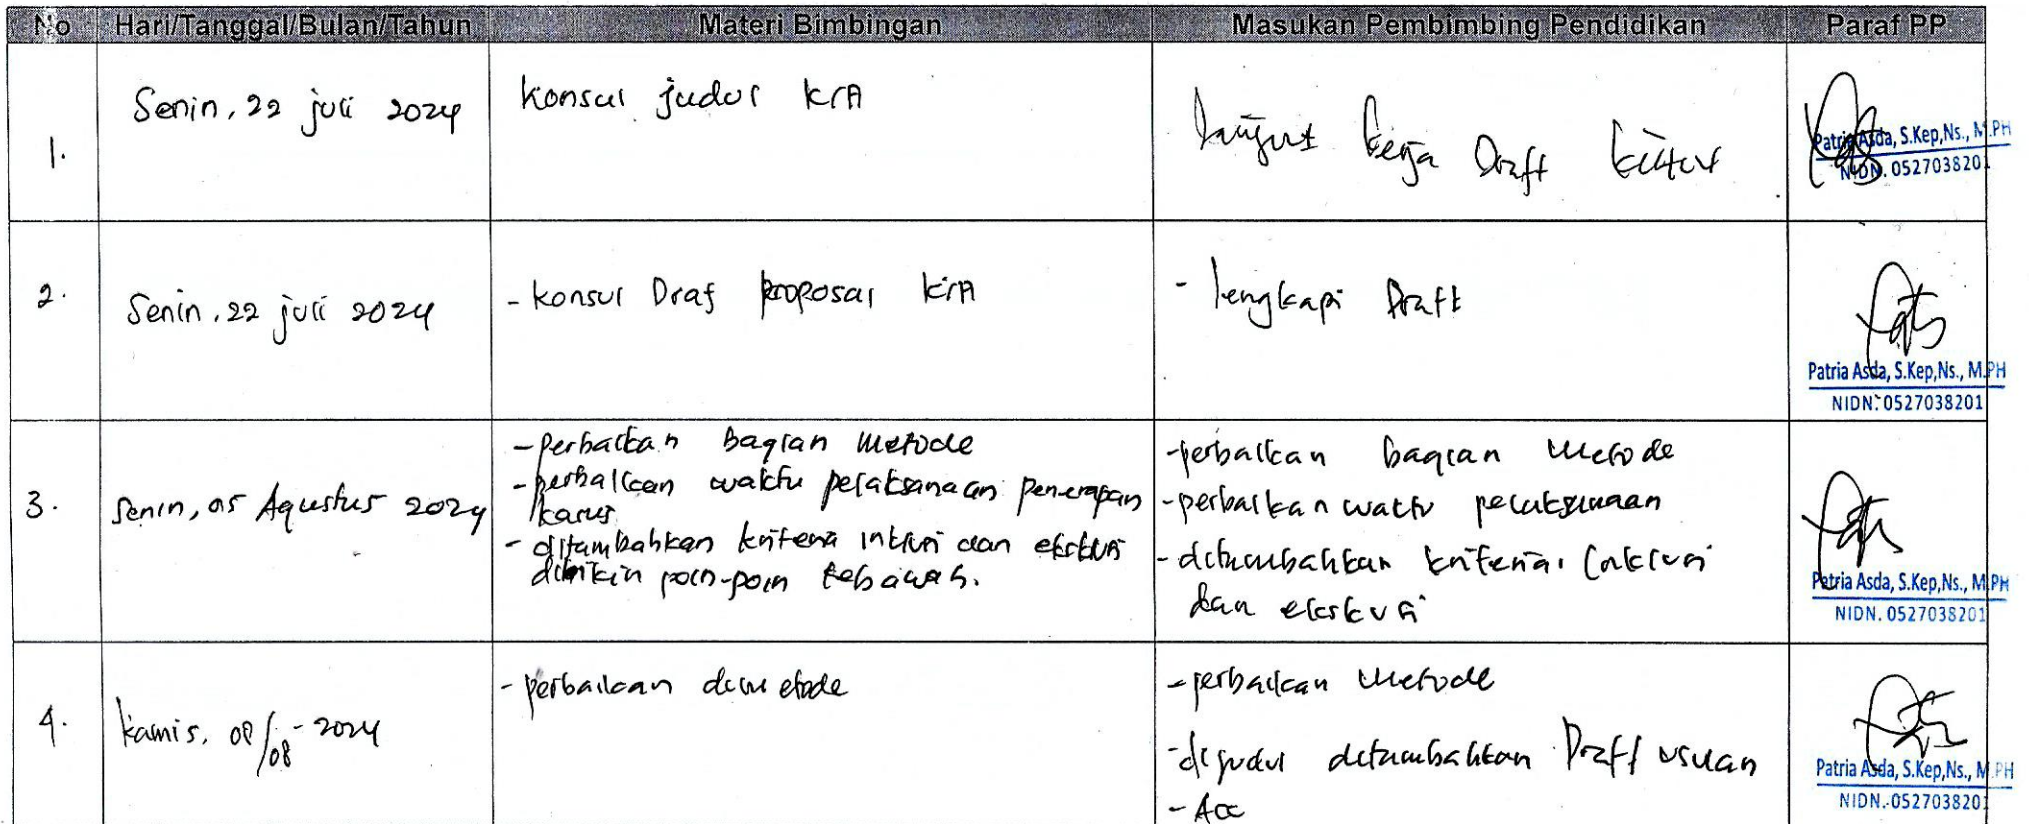 No Hari/Tanggal/Bulan/Tahun Materi Bimbingan Masukan Pembimbing Pendidikan Paraf PP
1. Senin, 22 juli 2024 konsul judul KIA Draft
Patria Asda, S.Kep,Ns., M.PH
NIDN. 0527038201
2. Senin, 22 juli 2024 - konsul Draf proposal KIA - lengkapi Draft
Patria Asda, S.Kep,Ns., M.PH
NIDN. 0527038201
3. Senin, 05 Agustus 2024
- perbaikan bagian metode
- perbaikan waktu pelaksanaan penerapan
kasus
- ditambahkan kriteria inklusi dan eksklusi
dibikin poin-poin kebawah.
- perbaikan bagian metode
- perbaikan waktu pelaksanaan
- ditambahkan kriteria inklusi
dan eksklusi
Patria Asda, S.Kep,Ns., M.PH
NIDN. 0527038201
4. kamis, 08/08-2024
- perbaikan dimetode
- perbaikan metode
- dijudul ditambahkan Draft usulan
- Acc
Patria Asda, S.Kep,Ns., M.PH
NIDN. 0527038201